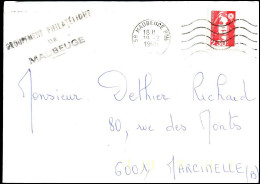 GROUPEMENT PHILATELIQUE
DE
MAUBEUGE
59 MAUBEUGE PPAL
18 H
19
Monsieur Dethier Richard
80, rue des Monts
6001 MARCINELLE (B)